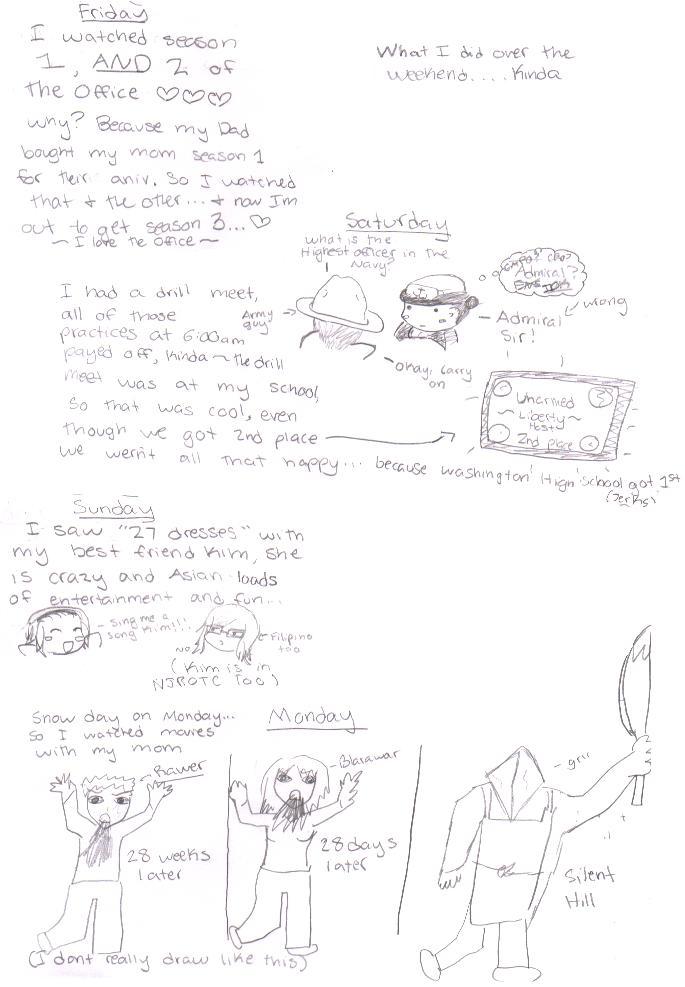 Friday
I watched season
1, AND 2 of
the Office ♡♡♡
why? Because my Dad
bought my mom season 1
for their aniv. So I watched
that & the other... & now Im
out to get season 3...♡
~ I love the Office ~
What I did over the
weekend.... Kinda
Saturday
what is the
Highest officer in the
Navy?
Admiral?
wrong
Army
guy
Admiral
Sir!
okay, carry
on
I had a drill meet,
all of those
practices at 6:00am
payed off, kinda ~ the drill
meet was at my school,
So that was cool, even
though we got 2nd place
we wern't all that happy... because Washington High School got 1st
(Jerks)
Unarmed
~ Liberty ~
2nd place
Sunday
I saw "27 dresses" with
my best friend Kim, she
is crazy and Asian loads
of entertainment and fun...
Sing me a
song Kim!!!
No
Filipino
too
(Kim is in
NJROTC too)
Monday
Snow day on Monday...
So I watched movies
with my mom
Rawer
28 weeks
later
Blarawar
28 days
later
grrr
Silent
Hill
(I dont really draw like this)